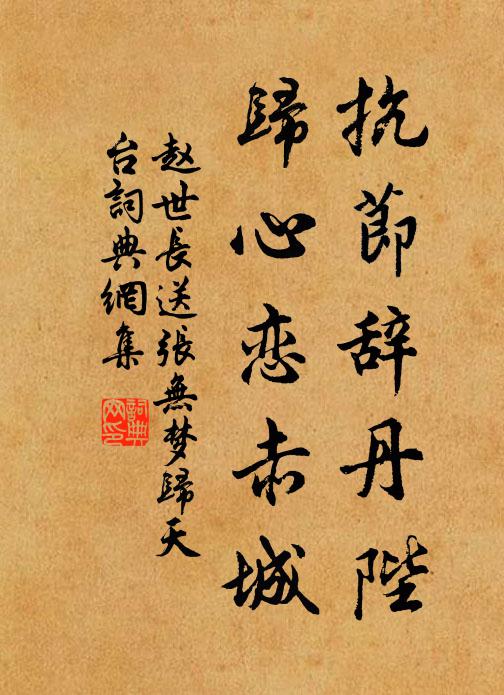 抗節辞丹陛
歸心恋赤城
赵世長送張無梦歸天
台詞典網集
詞典网印